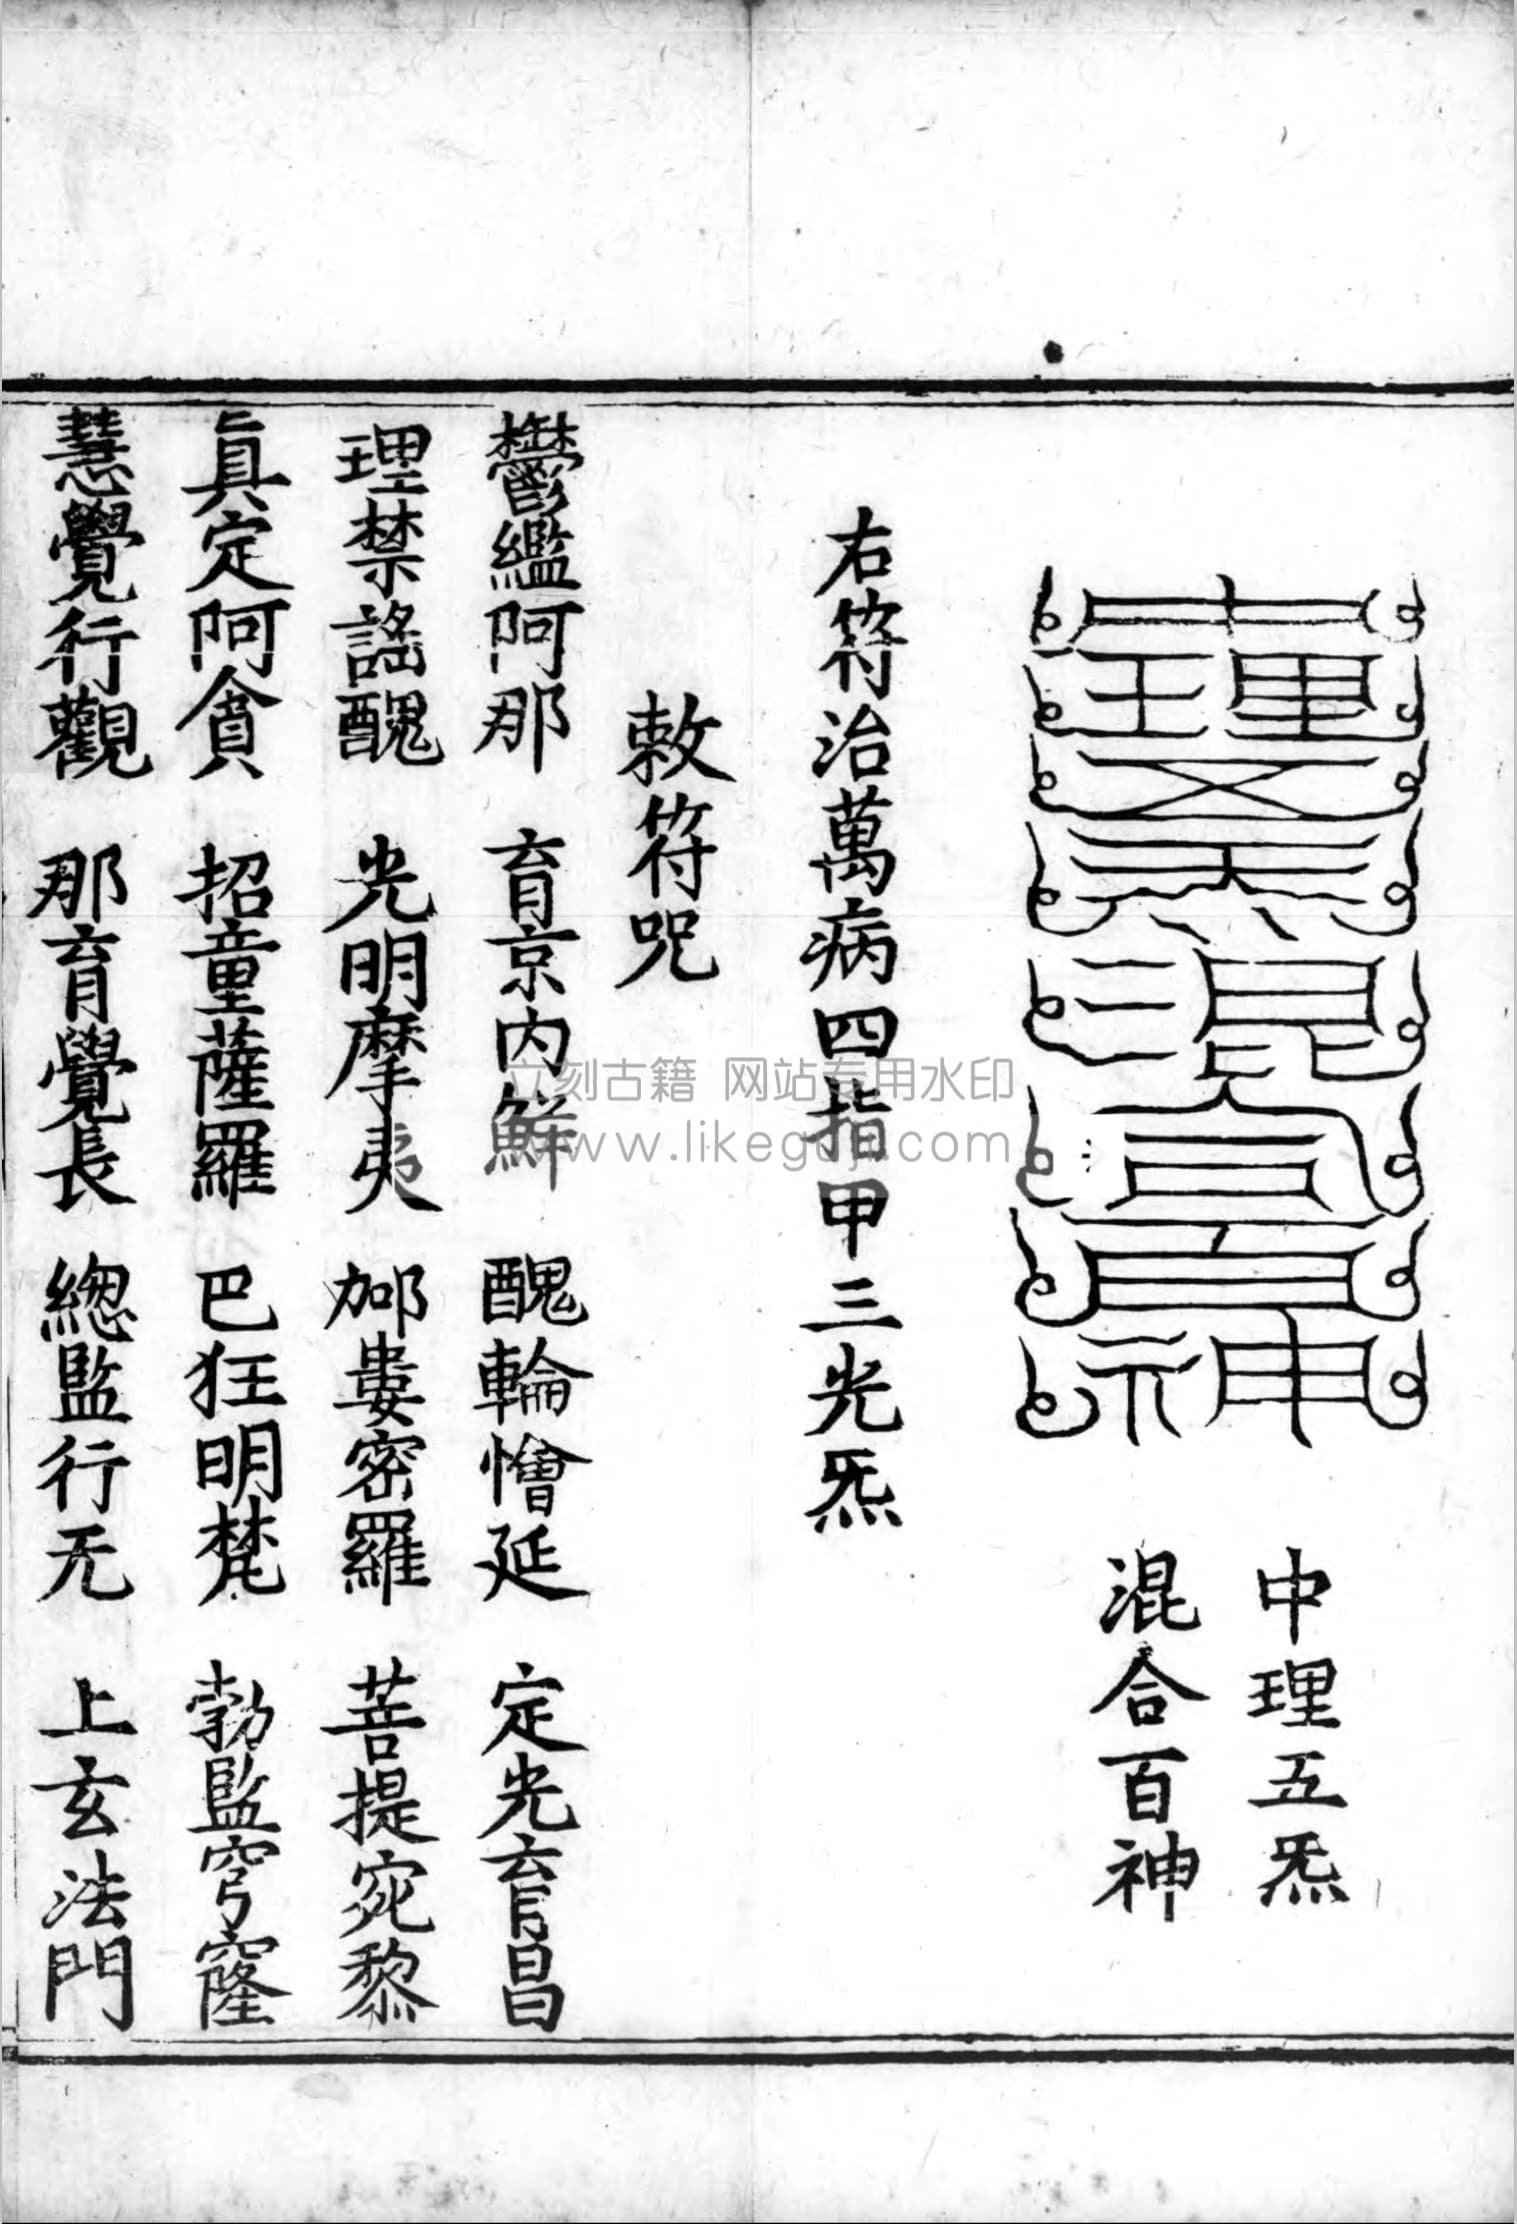 中理五炁
混合百神
右符治萬病四指甲三光炁
敕符咒
鬱繿阿那 育京內鮮 醜輪懀延 定光育昌
理禁謠醜 光明摩夷 㚙婁密羅 菩提宛黎
真定阿貪 招童薩羅 巴狂明梵 勃監穹窿
慧覺行觀 那育覺長 總監行无 上玄法門
立刻古籍 网站专用水印
www.likeguji.com